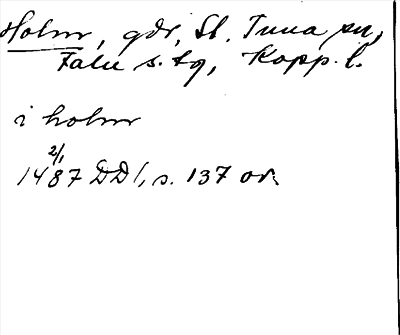 Holm, gdr, St. Tuna sn,
Falu s. tg, Kopp. l.
i holm
2/1
1487 DD1, s. 137 or.